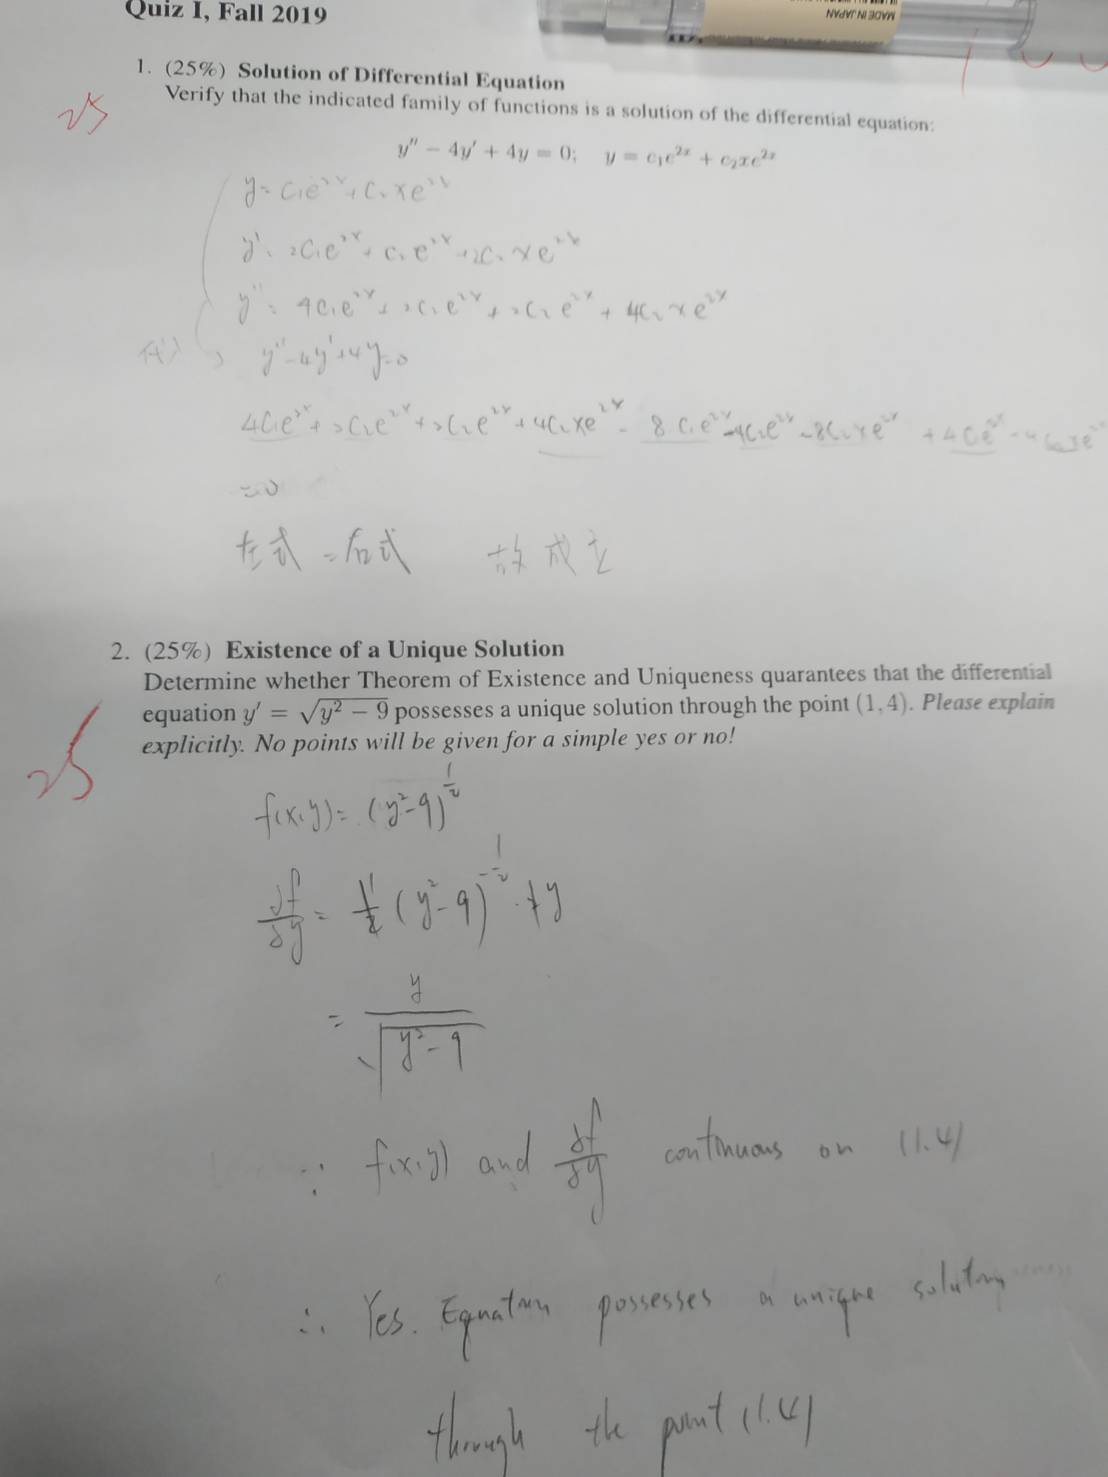 Quiz I, Fall 2019
MADE IN JAPAN
1. (25%) Solution of Differential Equation
25
Verify that the indicated family of functions is a solution of the differential equation:
y'' − 4y' + 4y = 0; y = c₁e²ˣ + c₂xe²ˣ
y = C₁e²ˣ + C₂xe²ˣ
y' = 2C₁e²ˣ + C₂e²ˣ + 2C₂xe²ˣ
y'' = 4C₁e²ˣ + 2C₂e²ˣ + 2C₂e²ˣ + 4C₂xe²ˣ
代入 y''-4y'+4y=0
4C₁e²ˣ + 2C₂e²ˣ + 2C₂e²ˣ + 4C₂xe²ˣ - 8C₁e²ˣ - 4C₂e²ˣ - 8C₂xe²ˣ + 4C₁e²ˣ
=0
左式 = 右式 故成立
2. (25%) Existence of a Unique Solution
Determine whether Theorem of Existence and Uniqueness quarantees that the differential
equation y' = √(y² − 9) possesses a unique solution through the point (1, 4). Please explain
explicitly. No points will be given for a simple yes or no!
25
f(x,y) = (y²-9)^(1/2)
∂f/∂y = 1/2 (y²-9)^(-1/2) · 2y
= y/√(y²-9)
∵ f(x,y) and ∂f/∂y continuous on (1.4)
∴ Yes. Equation possesses a unique solution
through the point (1.4)